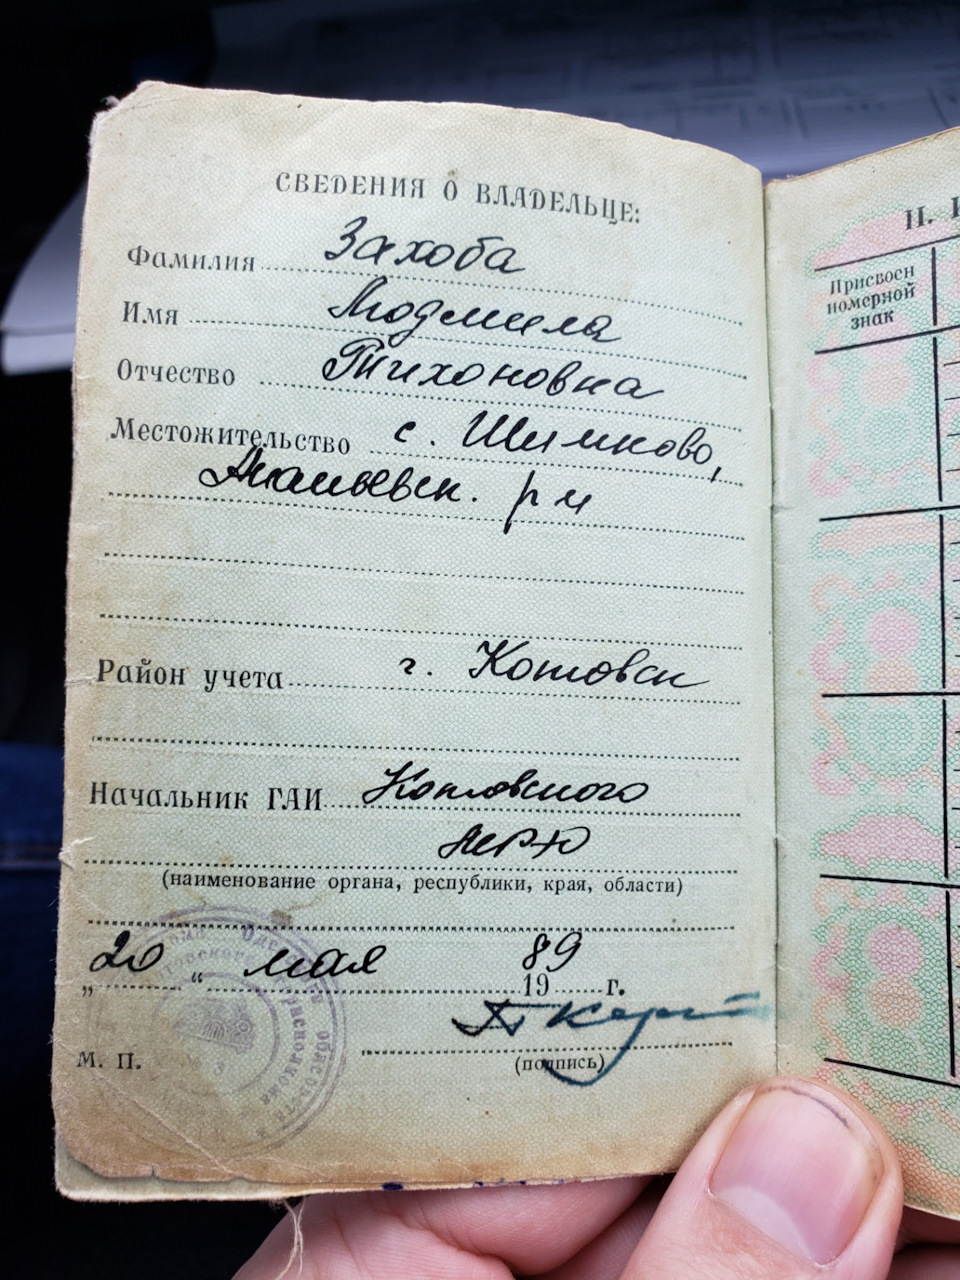 СВЕДЕНИЯ О ВЛАДЕЛЬЦЕ:
Фамилия Захова
Имя Людмила
Отчество Тихоновна
Местожительство с. Шимково,
Ананьевск. р-н
Район учета г. Котовск
Начальник ГАИ Котовского
МРЭО
(наименование органа, республики, края, области)
„20“ мая 1989 г.
М. П.
(подпись)
II.
Присвоен
номерной
знак